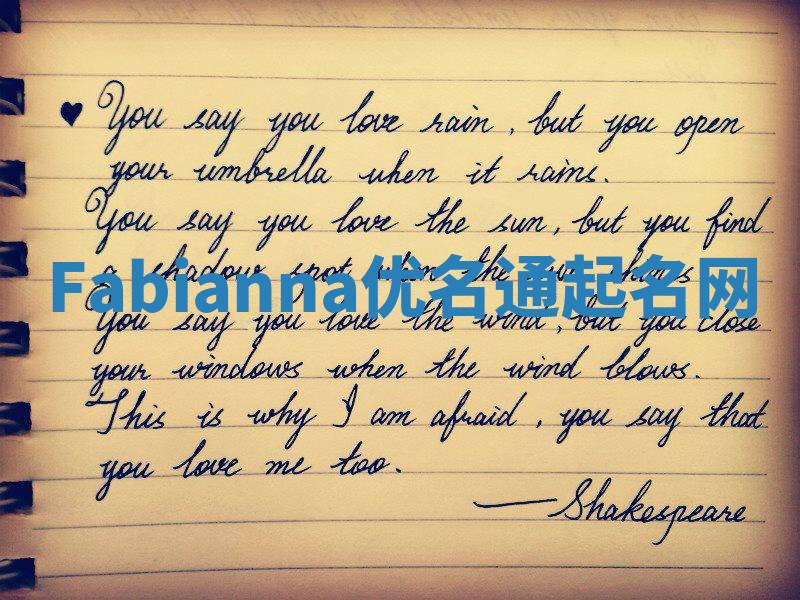 ♥ You say you love rain, but you open
your umbrella when it rains.
You say you love the sun, but you find
a shadow spot when the sun shines
Fabianna优名通起名网
You say you love the wind, but you close
your windows when the wind blows.
This is why I am afraid, you say that
you love me too.
— Shakespeare